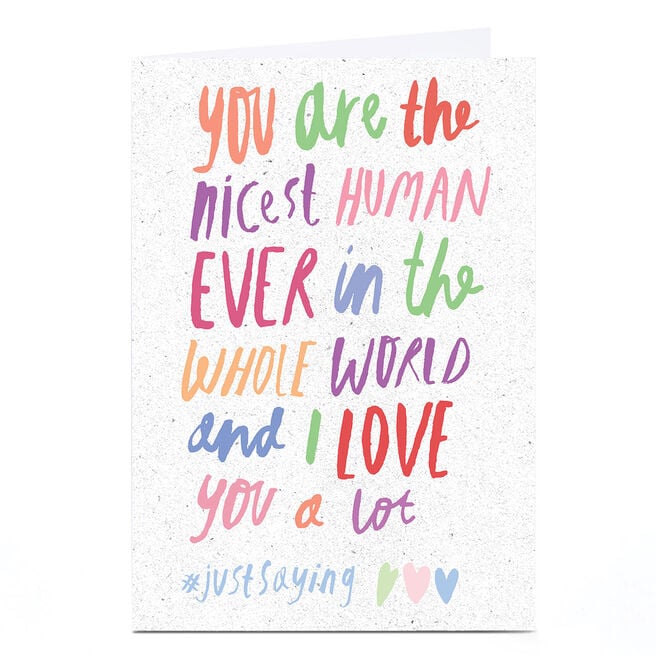 you are the
nicest HUMAN
EVER in the
WHOLE WORLD
and I LOVE
you a lot
#justsaying